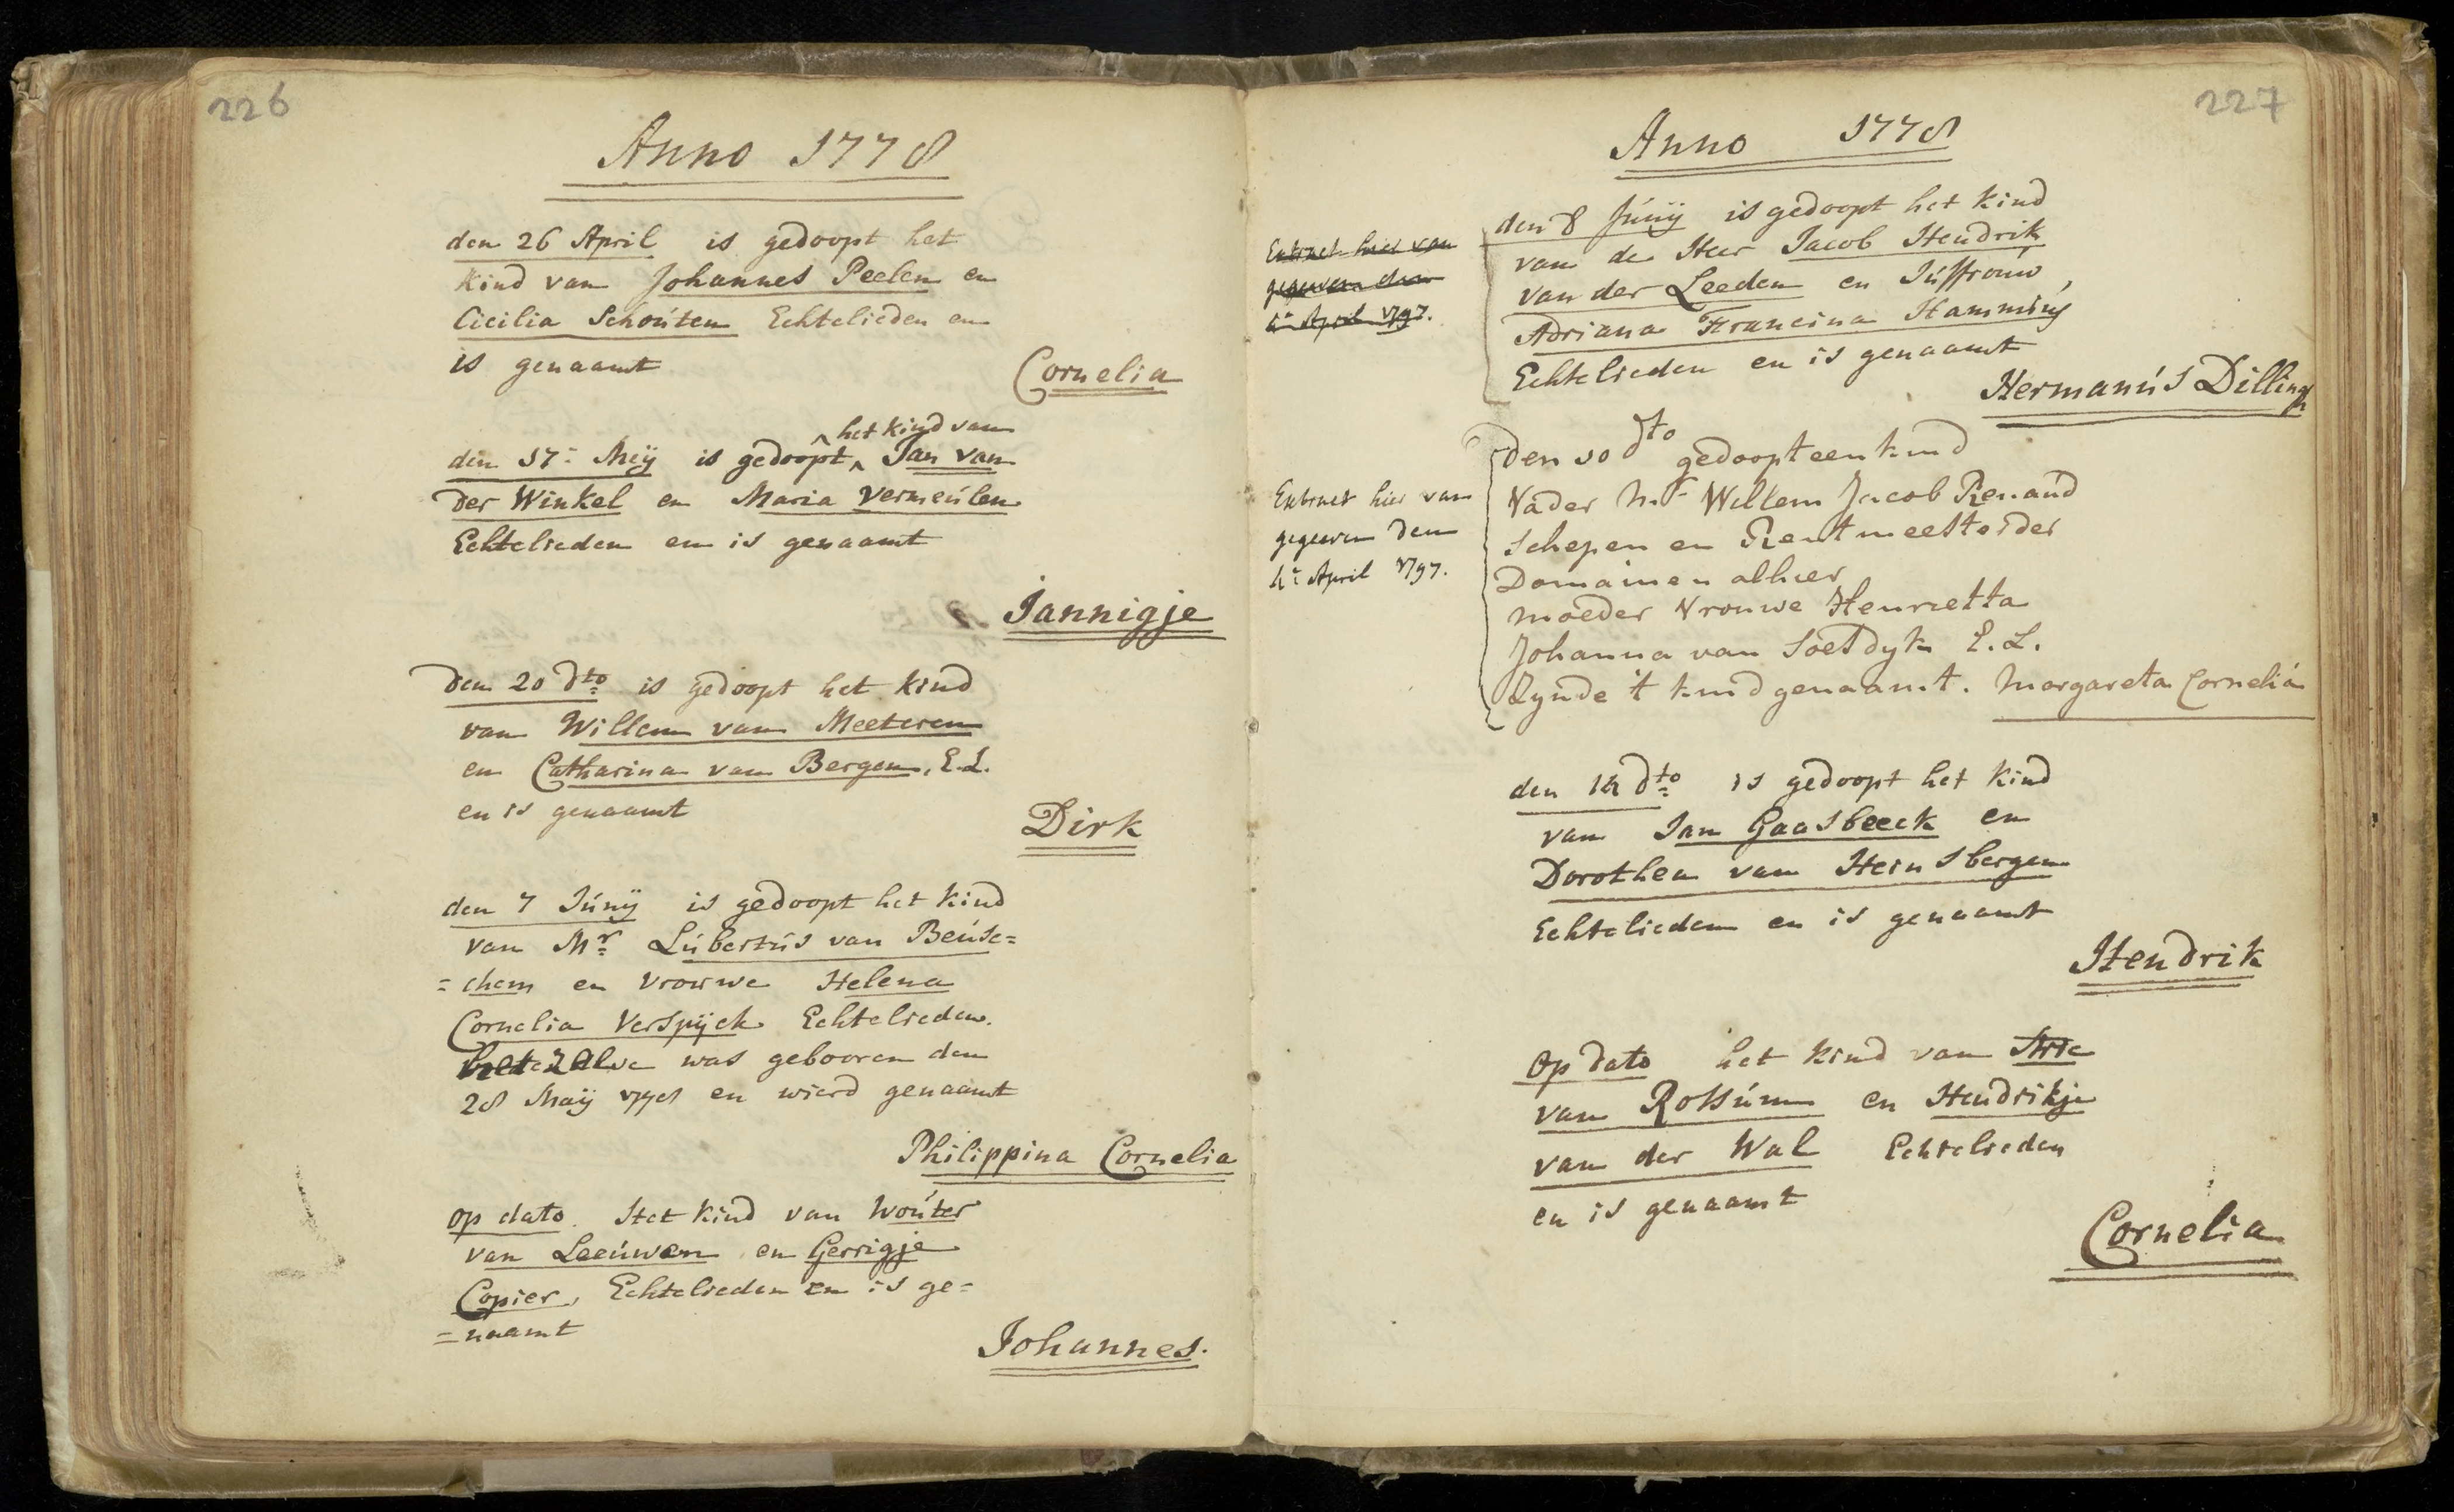 226
Anno 1778
den 26 April is gedoopt het
kind van Johannes Peelen en
Cicilia Schoúten Echtelieden en
is genaamt
Cornelia
het kind van
den 17 Meij is gedoopt Jan van
der Winkel en Maria Vermeúlen
Echtelieden en is genaamt
Jannigje
den 20 dto is gedoopt het kind
van Willem van Meeteren
en Catharina van Bergen, E.L.
en is genaamt
Dirk
den 7 Júnij is gedoopt het kind
van Mr Lúbertús van Beúse=
=chem en vrouwe Helena
Cornelia Verspijck Echtelieden.
was gebooren den
28 Maij 1778 en wierd genaamt
Philippina Cornelia
op dato Het kind van Woúter
van Leeúwen en Gerrigje
Copier, Echtelieden en is ge=
=naamt
Johannes.
227
Anno 1778
den 8 Júnij is gedoopt het kind
van de Heer Jacob Hendrik
van der Leeden en Júffroúw,
Adriana Francina Hamming
Echtelieden en is genaamt
Hermanús Dilling
Extract hier van
gegeeven den
4e April 1797.
den 10 dto gedoopt een kind
Vader Mr Willem Jacob Renaud
Schepen en Rentmeester der
Domainen alhier
moeder Vrouwe Henrietta
Johanna van Soesdyk E.L.
Zynde 't kind genaamt. Margareta Cornelia
Extract hier van
gegeeven den
4e April 1797.
den 14 dto is gedoopt het kind
van Jan Gaasbeeck en
Dorothea van Heinsbergen
Echtelieden en is genaamt
Hendrik
Op dato het kind van Arie
van Rossúm en Hendrikje
van der Wal Echtelieden
en is genaamt
Cornelia